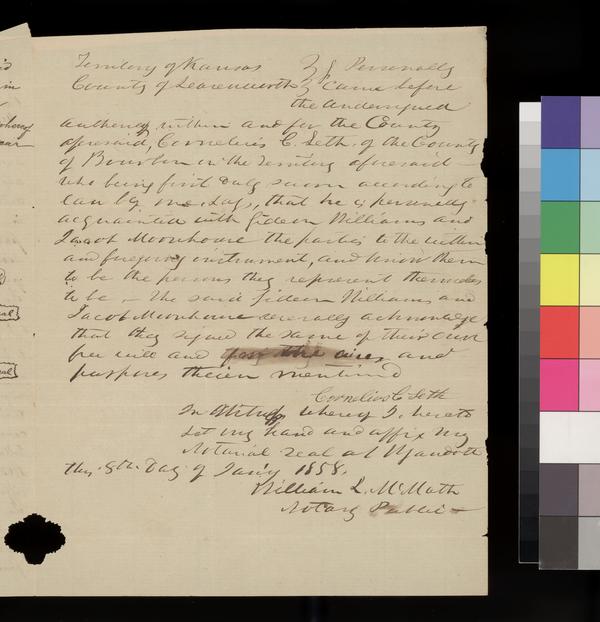 Territory of Kansas } Personally
County of Leavenworth } Came before
the undersigned
authority within and for the County
aforesaid, Cornelius C. Seth. of the County
of Bourbon in the Territory aforesaid
who being first duly sworn according to
Law by me. Says, that he is personally
acquainted with Gideon Williams and
Jacob Moonhouse the parties to the within
and foregoing instrument, and know them
to be the persons they represent themselves
to be - The said Gideon Williams and
Jacob Moonhouse severally acknowledge
that they signed the same of their own
free will and for the uses and
purposes therein mentioned
Cornelius C Seth
In whereof I, hereto
Set my hand and affix my
Notarial Seal at Wyandott
this 8th Day of Jan'y 1858.
William L. McMath
Notary Public